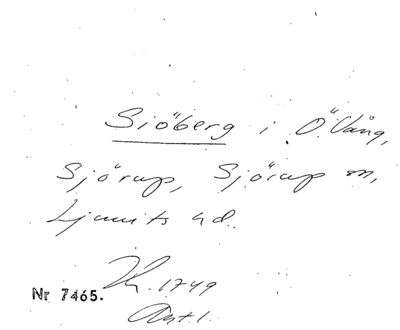 Sjöberg i Ö. Vång,
Sjörup, Sjörup sn,
Ljunits hd.
Nr 7465.
Kr. 1749
Ant.